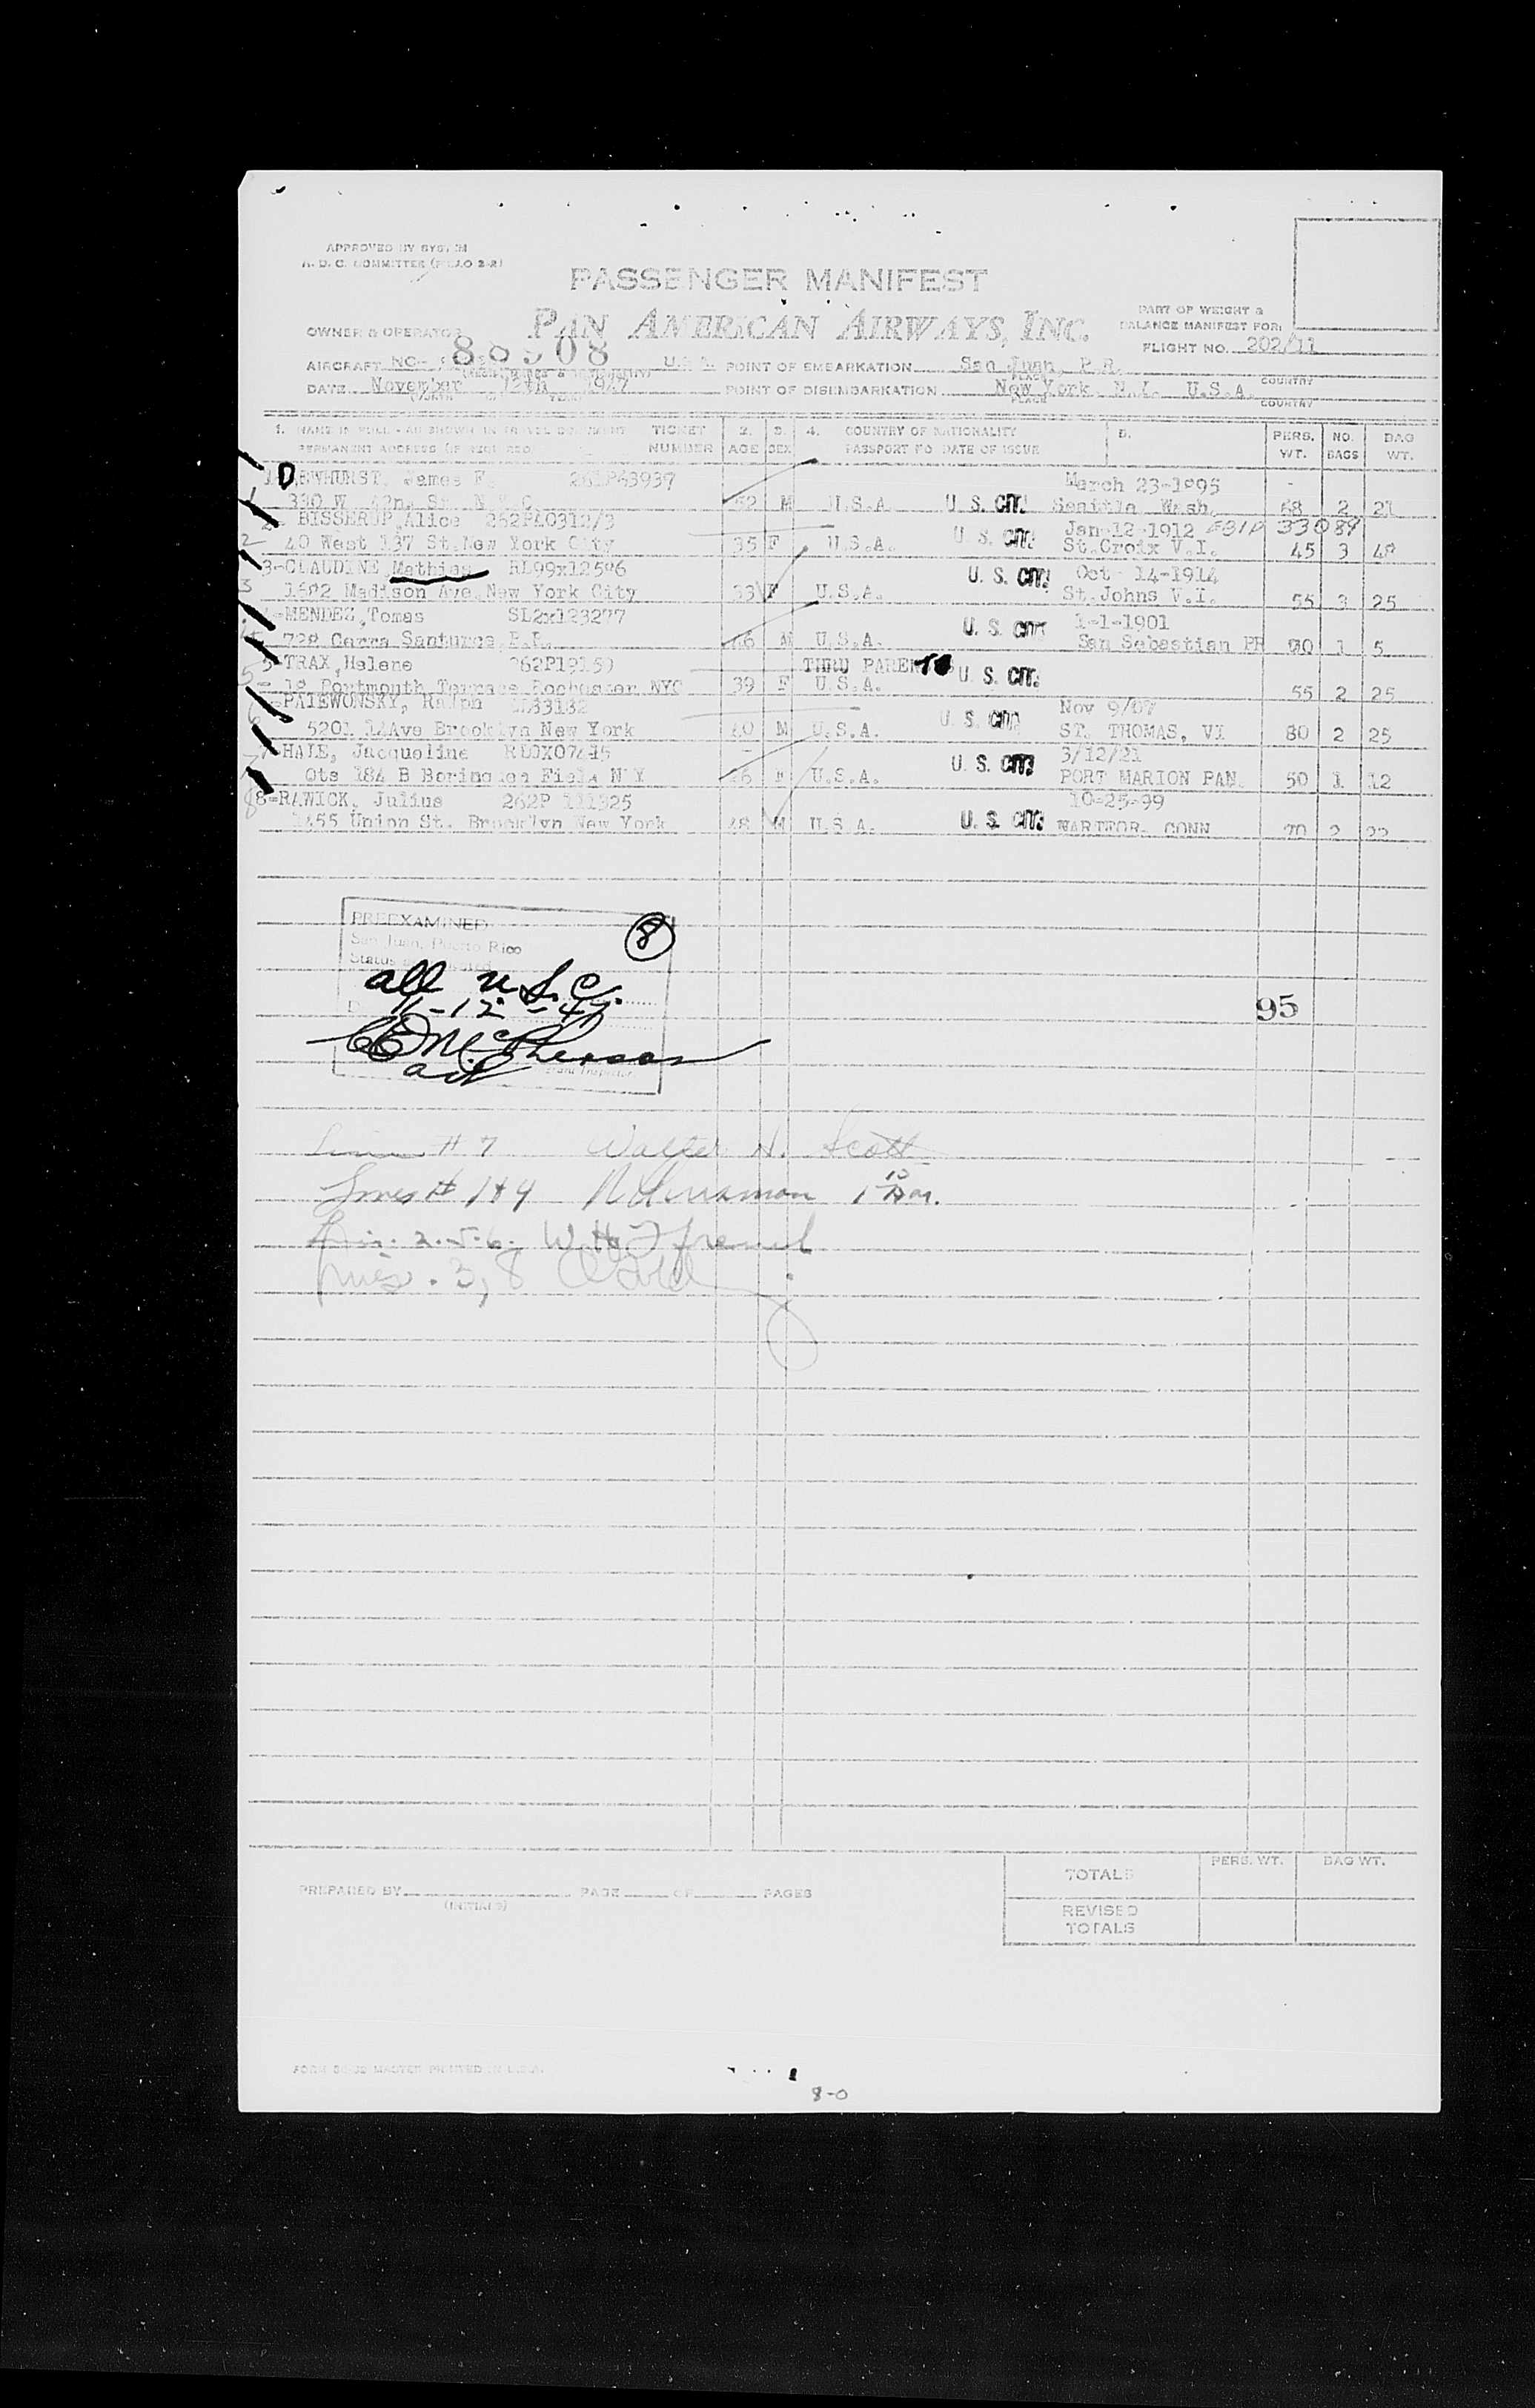 APPROVED BY SYSTEM
A. D. C. COMMITTEE
PASSENGER MANIFEST
PAN AMERICAN AIRWAYS, INC.
PART OF WEIGHT &
BALANCE MANIFEST FOR:
OWNER & OPERATOR
FLIGHT NO. 202/11
AIRCRAFT NC- 88908 U.S.A. POINT OF EMBARKATION San Juan, P.R.
PLACE COUNTRY
DATE November 12th 1947 POINT OF DISEMBARKATION New York, N.Y. U.S.A.
PLACE COUNTRY
1. NAME IN FULL - AS SHOWN IN TRAVEL DOCUMENT TICKET 2. 3. 4. COUNTRY OF NATIONALITY 5. PERS. NO. BAG
PERMANENT ADDRESS (IF REQUIRED) NUMBER AGE SEX PASSPORT NO DATE OF ISSUE WT. BAGS WT.
1- DEWHURST, James March 23-1895
330 W 42n. St. N.Y.C. 52 M U.S.A. U. S. CIT. Seattle Wash. 68 2 21
2- BISSERUP, Alice 262P40312/3 Jan-12-1912 33089
2 40 West 137 St.New York City 35 F U.S.A. U. S. CIT. St.Croix V.I. 45 3
3-CLAUDINE, Mathias RL99x12506 U. S. CIT. Oct- 14-1914
3 1682 Madison Ave.New York City 33 F U.S.A. St.Johns V.I. 55 3 25
4-MENDEZ, Tomas SL2x123277 U. S. CIT 1-1-1901
728 Cerra Santurce, P.R. 46 M U.S.A. San Sebastian PR 70 1 5
5-TRAX, Helene THRU PARENTS U. S. CIT.
5 Portmouth Terrace Rochester, NYC 39 F U.S.A. 55 2 25
6-PAIEWONSKY, Ralph U. S. CIT Nov 9/07
5201 14Ave Brooklyn New York 40 M U.S.A. ST. THOMAS, VI 80 2 25
7-HALE, Jacqueline U. S. CIT. 3/12/21
Qts 184 B Borinquen Field 26 F U.S.A. PORT MARION PAN. 50 1 12
8-RAWICK, Julius 262P 111325 10-25-99
8 1455 Union St. Brooklyn New York 48 M U.S.A. U. S. CIT. CONN 70 2 22
PREEXAMINED 8
San Juan, Puerto Rico
Status
all U.S.C.
11-12-47 95
McPherson
Line # 7 Walter H. Scott
Lines # 1+4
Lin. 2.5.6. W.H. French
Lines. 3, 8
TOTALS PERS. WT. BAG WT.
PREPARED BY PAGE OF PAGES
(INITIALS)
REVISED
TOTALS
8-0